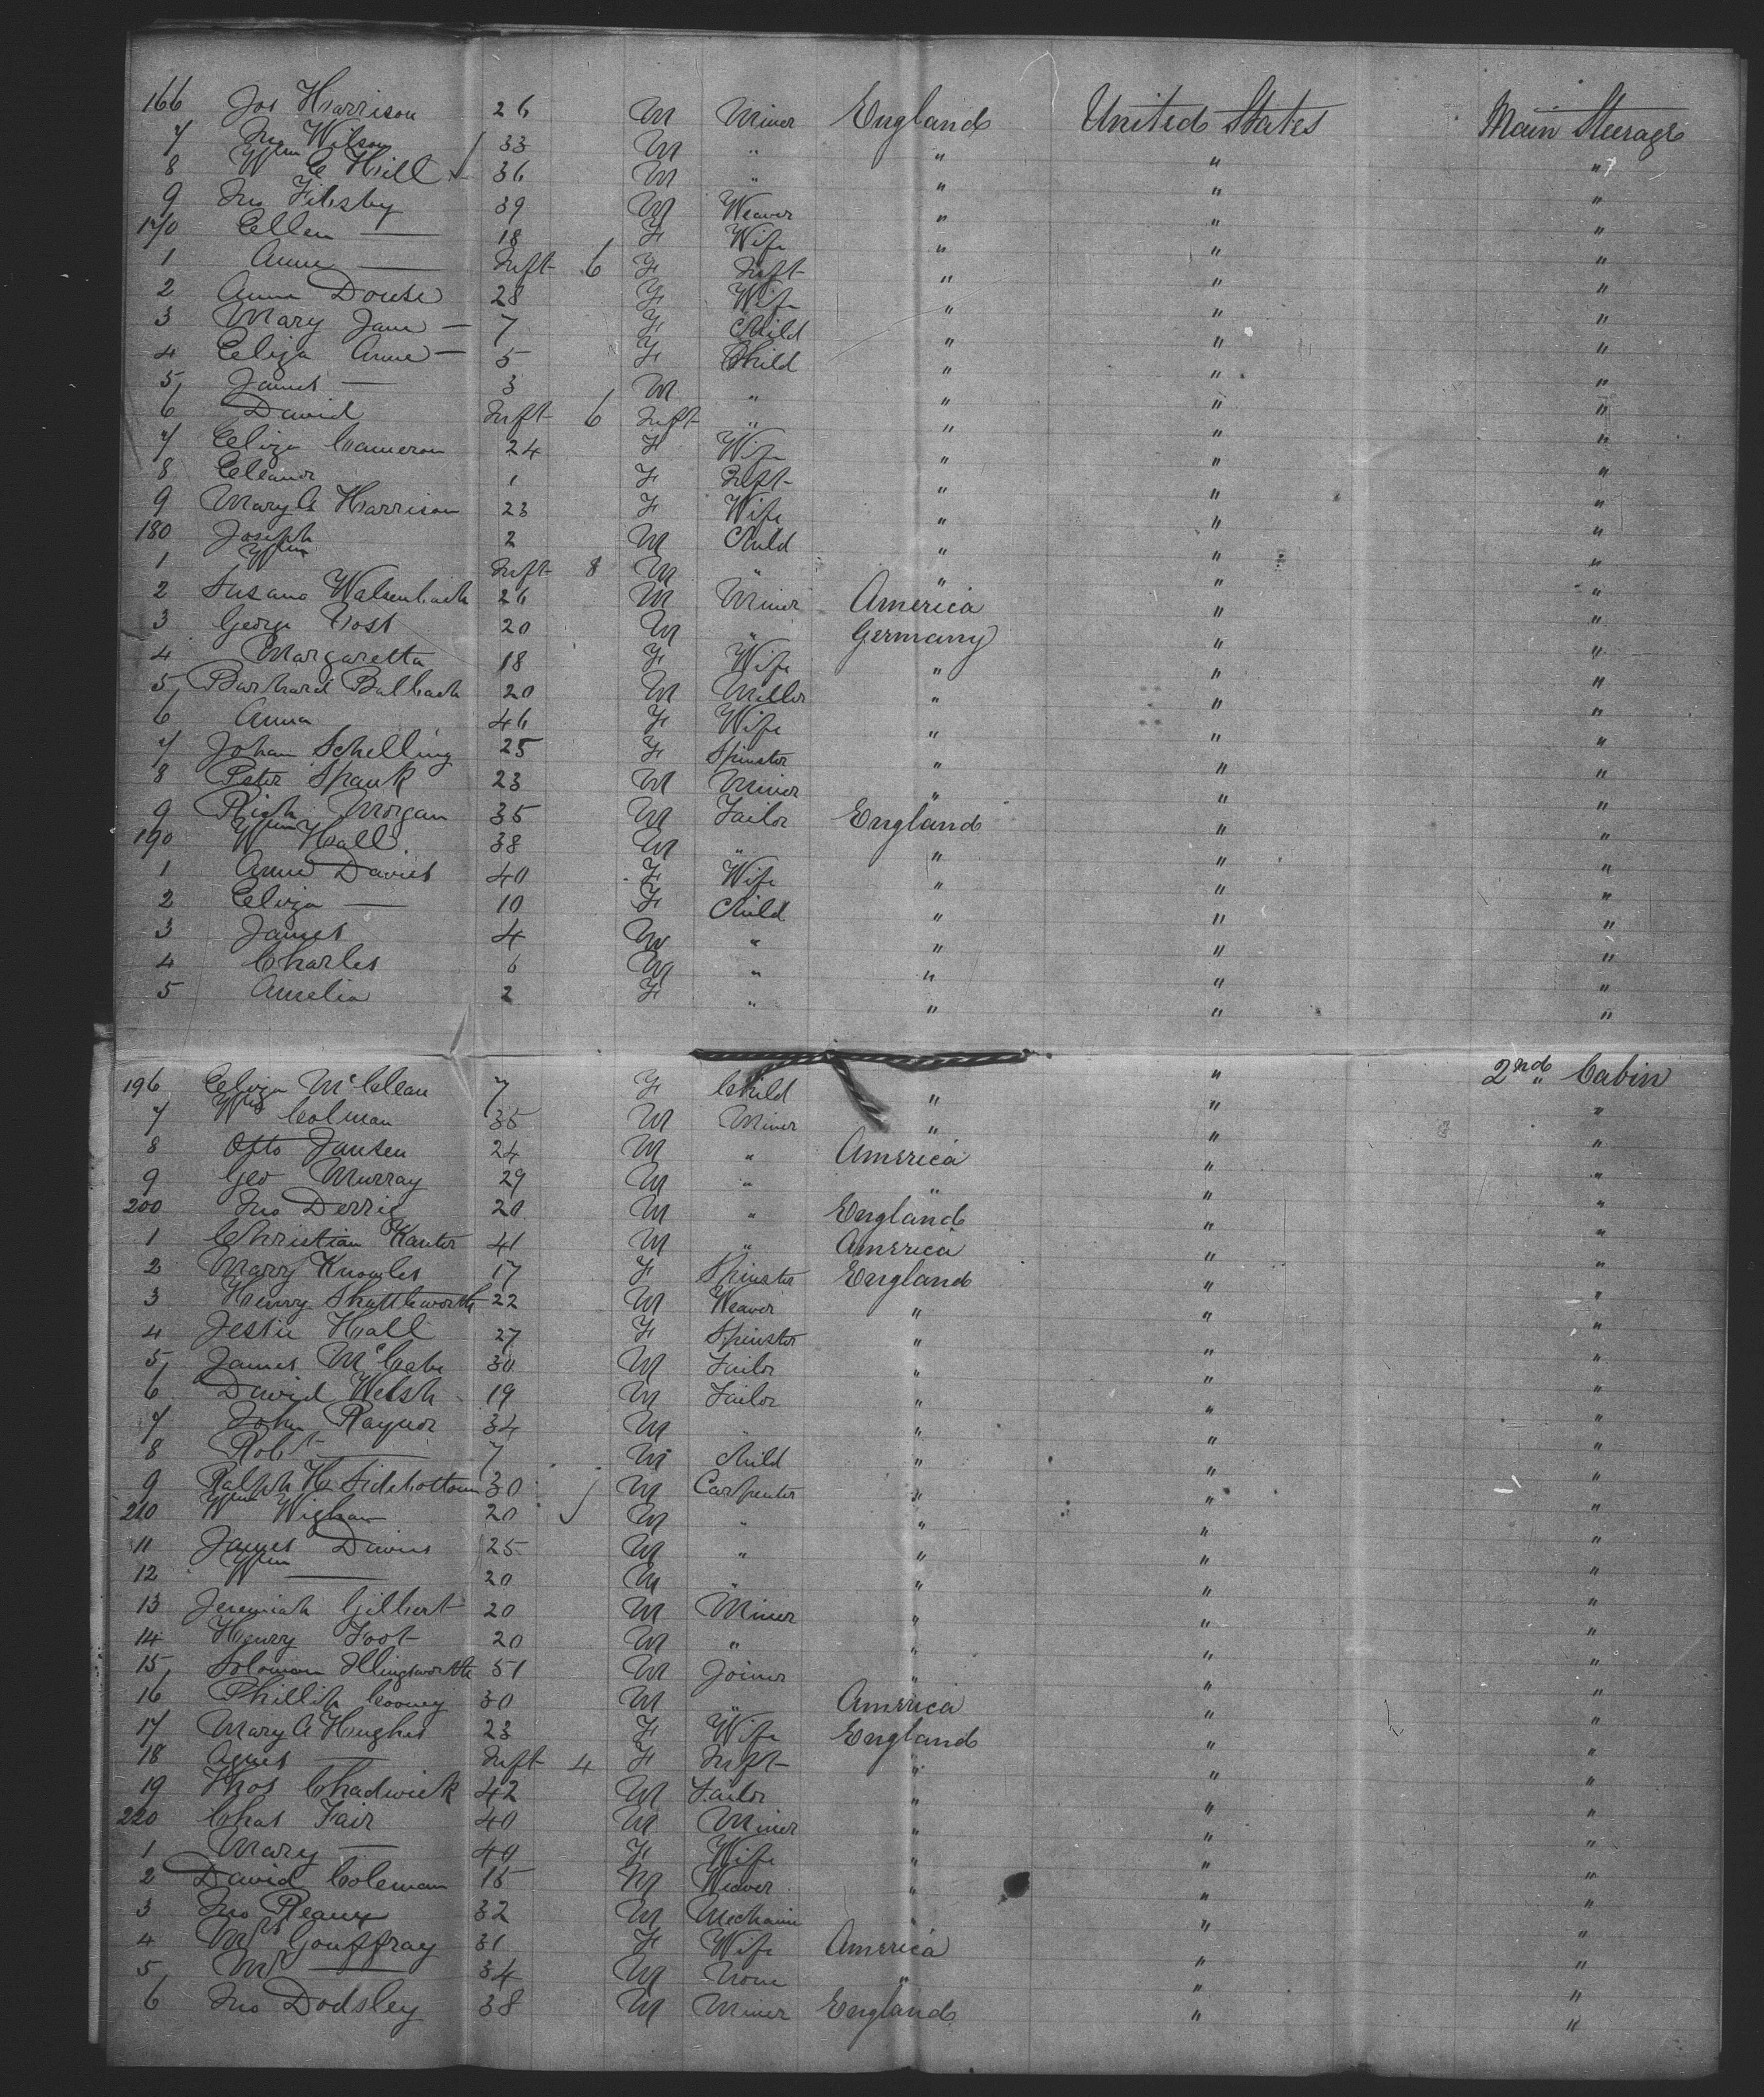 166 Jos Harrison 26 M Miner England United States Main Steerage
7 Jno Wilson 33 M " " " "
8 Wm C Hill 36 M " " " "
9 Jno 39 M Weaver " " "
170 Ellen — 18 F Wife " " "
1 Anne — Inft 6 F Inft " " "
2 Anna Douse 28 F Wife " " "
3 Mary Jane — 7 F Child " " "
4 Eliza Anne — 5 F Child " " "
5 James — 3 M " " " "
6 David Inft 6 Inft " " " "
7 Eliza Cameron 24 F Wife " " "
8 Eleanor 1 F Inft " " "
9 Mary A Harrison 23 F Wife " " "
180 Joseph 2 M Child " " "
1 Wm Inft 8 M " " " "
2 Susana 26 M Miner America " "
3 George Yost 20 M " Germany " "
4 Margaretta 18 F Wife " " "
5 Balbach 20 M Miller " " "
6 Anna 46 F Wife " " "
7 Johan Schelling 25 F Spinster " " "
8 Peter Spauk 23 M Miner " " "
9 Rich Morgan 35 M Tailor England " "
190 Wm Hall 38 M " " " "
1 Anne Davies 40 F Wife " " "
2 Eliza — 10 F Child " " "
3 James 4 M " " " "
4 Charles 6 M " " " "
5 Amelia 2 F " " " "
196 Eliza McClean 7 F Child " " 2nd Cabin
7 Wm Colman 35 M Miner " " "
8 Otto Jansen 24 M " America " "
9 Geo Murray 29 M " " " "
200 Jno Derrig 20 M " England " "
1 Christian Kanter 41 M " America " "
2 Mary Knowles 17 F Spinster England " "
3 Henry Shuttleworth 22 M Weaver " " "
4 Jessie Hall 27 F Spinster " " "
5 James McCabe 30 M Tailor " " "
6 David Welsh 19 M Tailor " " "
7 John Raynor 34 M " " " "
8 Robt — 7 M Child " " "
9 Ralph H Sidebottom 30 M Carpenter " " "
210 Wm Wigham 20 M " " " "
11 James Davies 25 M " " " "
12 Wm — 20 M " " " "
13 Jeremiah Gilbert 20 M Miner " " "
14 Henry Foot 20 M " " " "
15 Soloman Illingsworth 51 M Joiner " " "
16 Phillip Cooney 30 M " America " "
17 Mary A Hughes 23 F Wife England " "
18 Agnes — Inft 4 F Inft " " "
19 Thos Chadwick 42 M Tailor " " "
220 Chas Fair 40 M Miner " " "
1 Mary — 40 F Wife " " "
2 David Coleman 15 M Weaver " " "
3 Jno 32 M Mechanic " " "
4 Mrs Gouffray 31 F Wife America " "
5 Mr — 34 M None " " "
6 Jno Dodsley 38 M Miner England " "